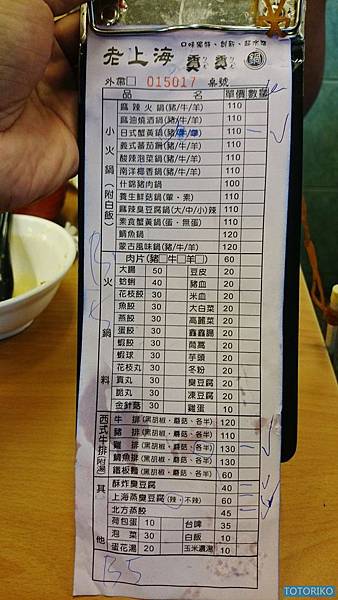 口味獨特、創新、超水準
老上海 臭臭鍋
外帶□ 015017 桌號
品名 單價 數量
小火鍋(附白飯)
麻辣火鍋(豬/牛/羊) 110
麻油燒酒鍋(豬/牛/羊) 110
日式蟹黃鍋(豬/牛/羊) 110
義式蕃茄鍋(豬/牛/羊) 110
酸辣泡菜鍋(豬/牛/羊) 110
南洋椰香鍋(豬/牛/羊) 110
什錦豬肉鍋 100
養生鮮菇鍋(葷·素) 110
麻辣臭豆腐鍋(大/中/小)辣 110
素食蟹黃鍋(蛋·無蛋) 110
鯛魚鍋 120
蒙古風味鍋(豬/牛/羊) 120
火鍋料
肉片(豬□牛□羊□) 60
大腸 50 豆皮 20
蛤蜊 40 豬血 20
花枝餃 30 米血 20
魚餃 30 大白菜 20
燕餃 30 高麗菜 20
蛋餃 30 鑫鑫腸 20
蝦餃 30 茼蒿 20
蝦球 30 芋頭 20
花枝丸 30 冬粉 20
貢丸 30 臭豆腐 20
脆丸 30 凍豆腐 20
金針菇 30 雞蛋 10
西式牛排(附湯)
牛排(黑胡椒·蘑菇、各半) 120
豬排(黑胡椒·蘑菇、各半) 110
雞排(黑胡椒·蘑菇、各半) 130
鯛魚排(黑胡椒·蘑菇、各半) 130
鐵板麵(黑胡椒·蘑菇、各半) 60
其他
酥炸臭豆腐 40
上海蒸臭豆腐(辣、不辣) 60
北方蒸餃 45
荷包蛋 10 台啤 35
泡菜 30 白飯 10
蛋花湯 20 玉米濃湯 10
B5
TOTORIKO